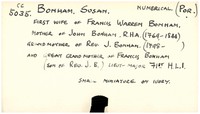 CG
5035. BONHAM, SUSAN. NUMERICAL (POR.)
FIRST WIFE OF FRANCIS WARREN BONHAM.
MOTHER OF JOHN BONHAM, R.H.A. (1764-1826)
GRAND MOTHER OF REV. J. BONHAM. (1798-
AND GREAT GRAND MOTHER OF FRANCIS BONHAM
(SON OF REV. J. B.) LIEUT-MAJOR 71ST H.L.I.
SMR - MINIATURE ON IVORY.